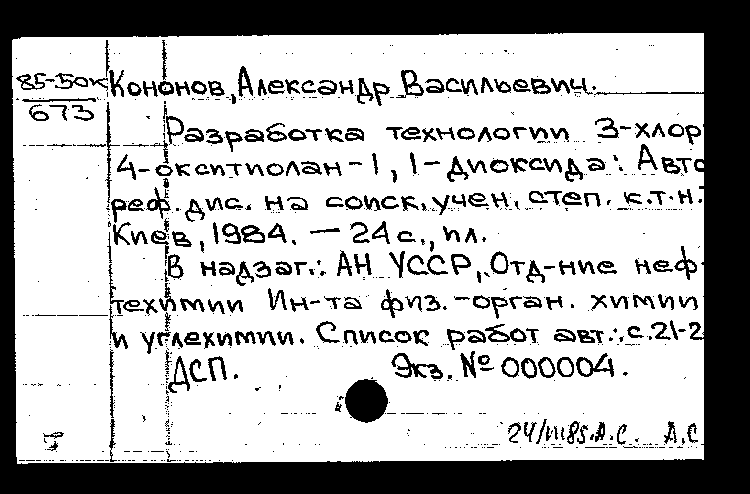 85-50к
673
Кононов, Александр Васильевич.
Разработка технологии 3-хлор
4-окситиолан-1,1-диоксида: Авто
реф. дис. на соиск. учен. степ. к.т.н.
Киев, 1984. — 24 с., ил.
В надзаг.: АН УССР, Отд-ние неф-
техимии Ин-та физ.-орган. химии
и углехимии. Список работ авт.: с.21-2
ДСП. Экз. № 000004.
24/III85. А.С. А.С